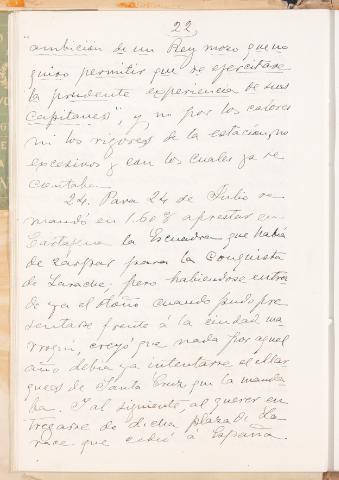 22,
ambición de un Rey mozo que no
quiso permitir que se ejercitase
la prudente experiencia de sus
Capitanes", y no por los calores
ni los rigores de la estación, no
excesivos y con los cuales ya se
contaba.
24. Para 24 de Julio se
mandó en 1.608 aprestar en
Cartagena la Escuadra que había
de zarpar para la Conquista
de Larache; pero habiéndose entra-
do ya el otoño cuando pudo pre-
sentarse frente á la ciudad ma-
rroquí, creyó que nada por aquel
año debía ya intentarse el Mar-
ques de Santa Cruz que la manda-
ba. Y al siguiente, al querer en-
tregarse de dicha plaza de La-
race que cedió á España.